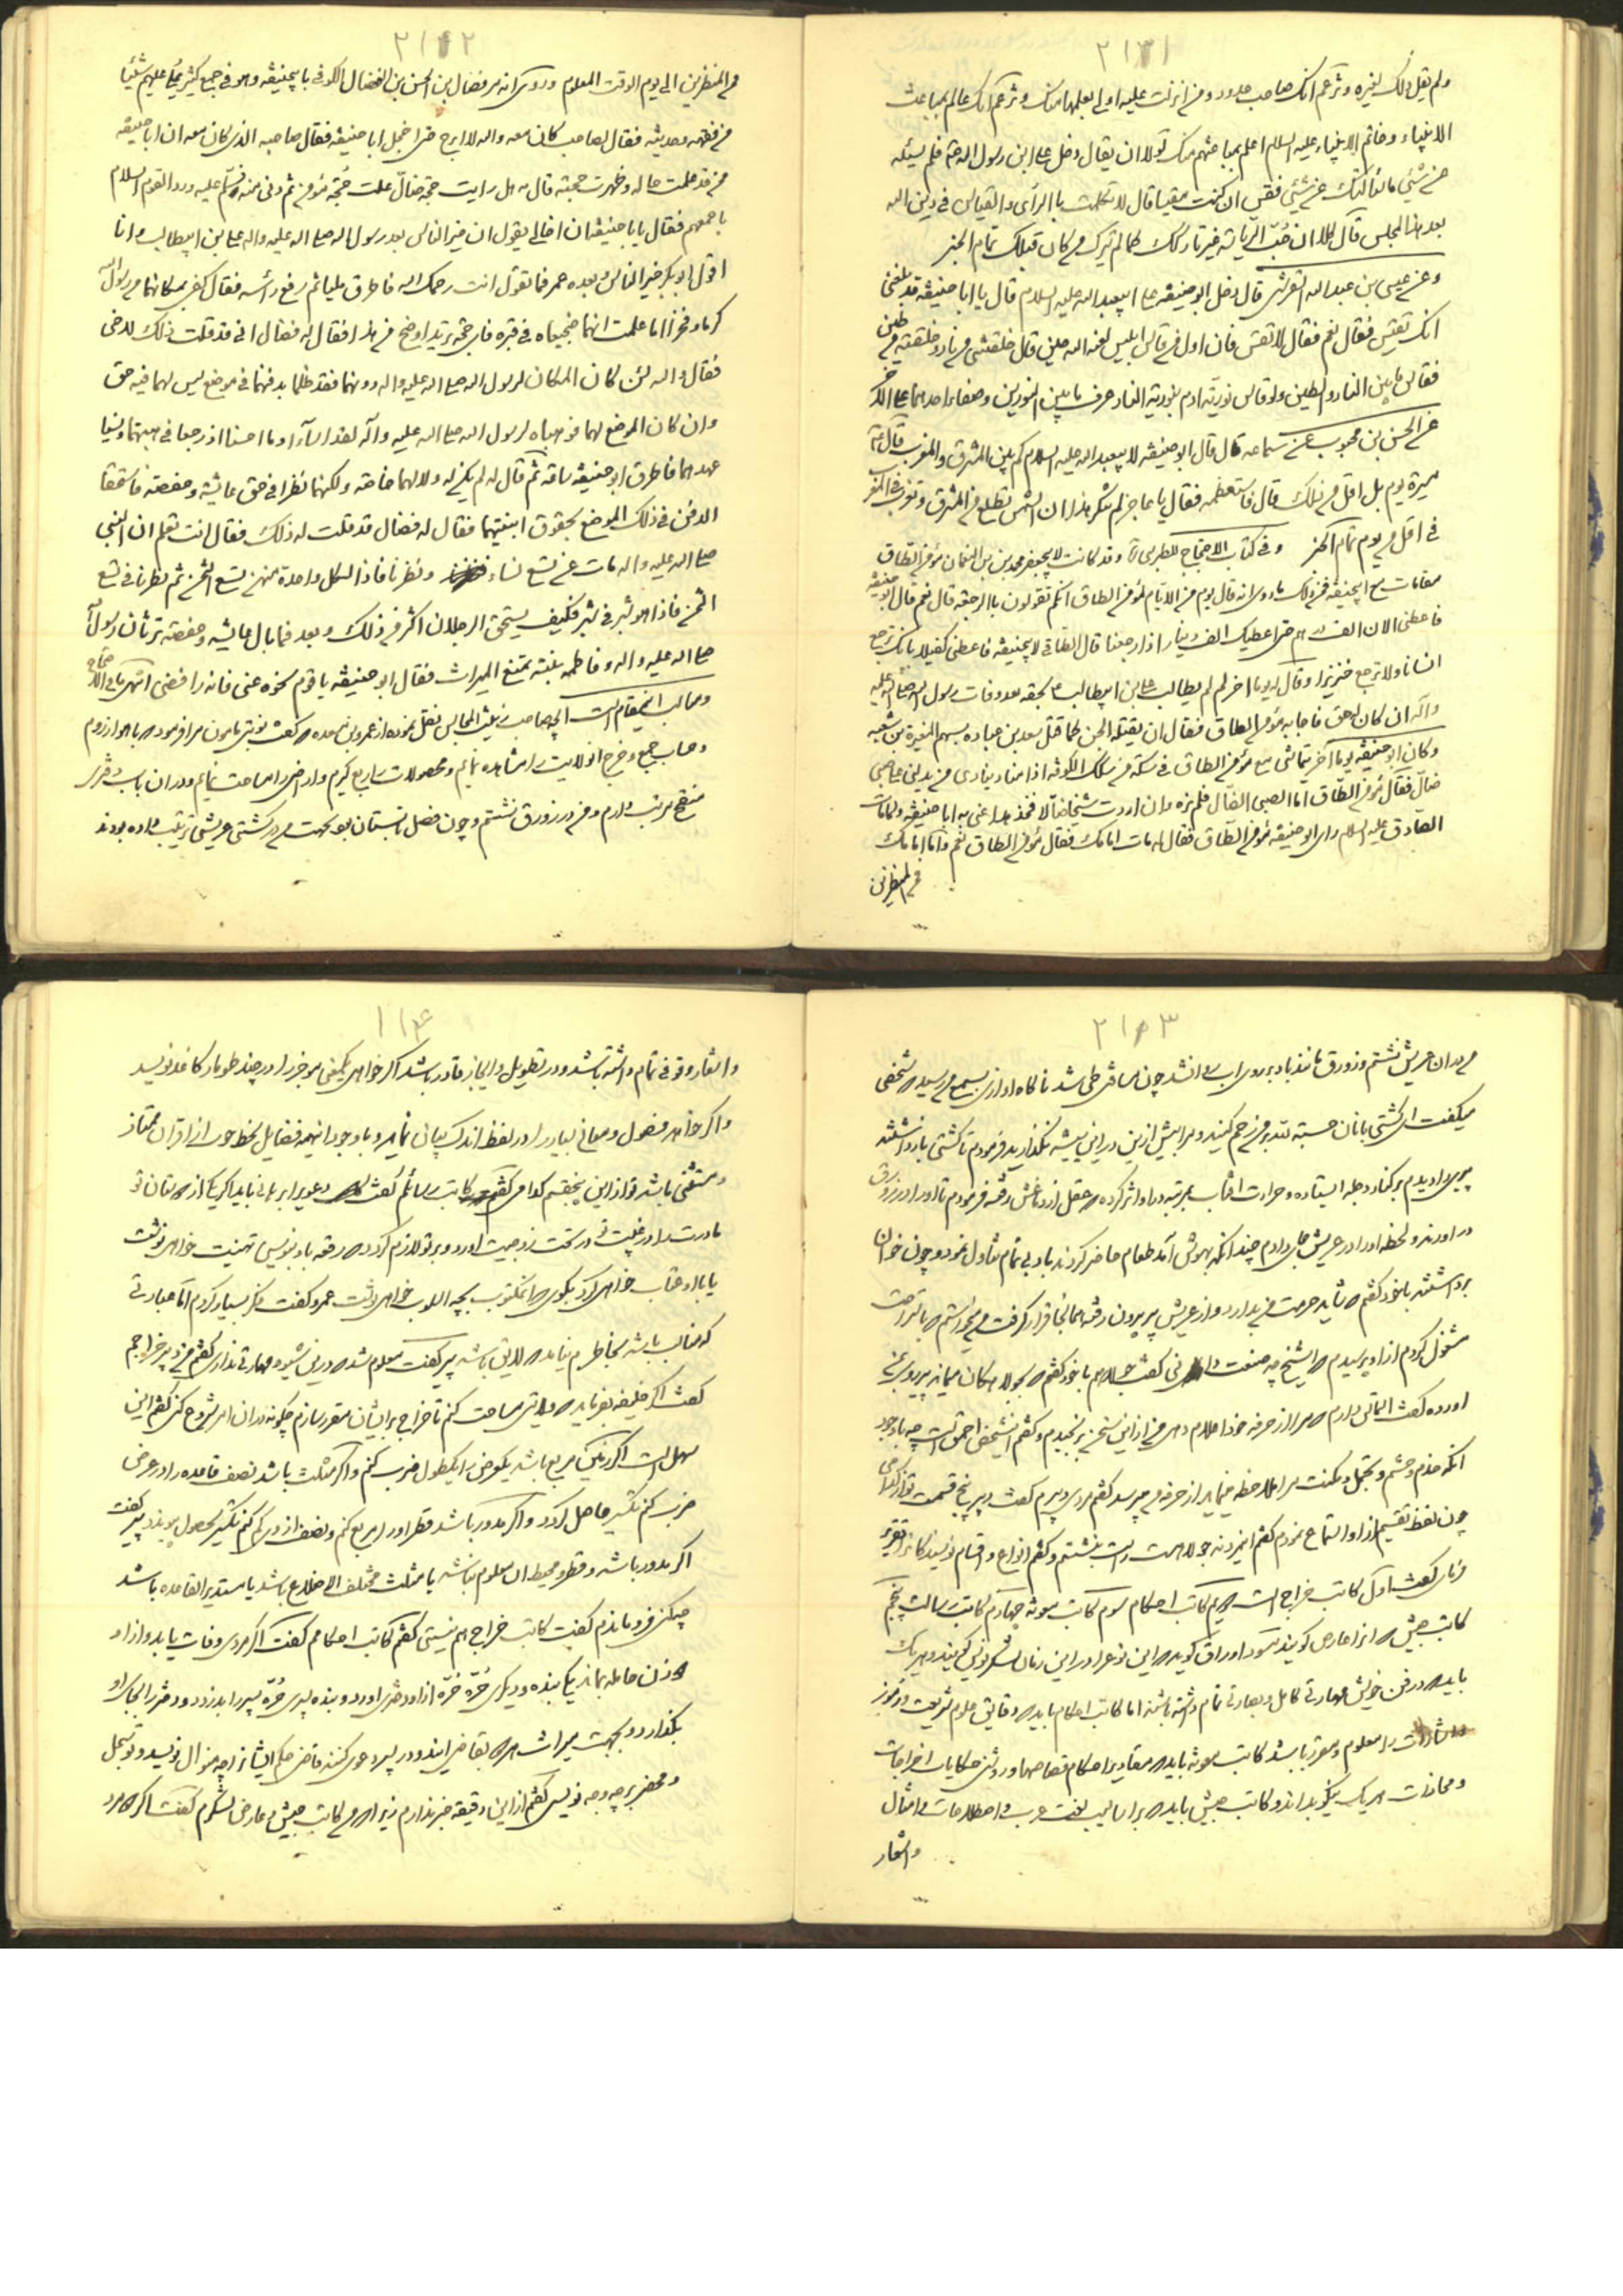 ۲۱۳۱
ولم یقل ذلک لغیره وتزعم انک صاحب حدود ومن انزلت علیه اولی بعلمها منک وتزعم انک عالم بمباعث
الانبیاء وخاتم الانبیاء علیه السلام اعلم بمباعثهم منک ولولا ان یقال دخل علی ابن رسول الله فلم یسئله
عن شیئ ما سألتک عن شیئ فقس ان کنت مقیسا قال لا تکلمت بالرأی والقیاس فی دین الله
بعد هذا المجلس قال کلا ان حب الریاسة غیر تارکک کما لم یترک من کان قبلک تمام الخبر
وعن عیسی بن عبد الله القرشی قال دخل ابو حنیفه علی ابیعبد الله علیه السلام قال یا ابا حنیفه قد بلغنی
انک تقیس فقال نعم فقال لا تقس فان اول من قاس ابلیس لعنه الله حین قال خلقتنی من نار وخلقته من طین
فقاس ما بین النار والطین ولو قاس نوریة ادم بنوریة النار عرف ما بین النورین وصفاء احدهما علی الاخر
عن الحسن بن محبوب عن سماعه قال قال ابو حنیفه لابیعبد الله علیه السلام کم بین المشرق والمغرب قال
مسیرة یوم بل اقل من ذلک قال فاستعظمه فقال یا عاجز لم تنکر هذا ان الشمس تطلع من المشرق وتغرب فی المغرب
فی اقل من یوم تمام الخبر وفی کتاب الاحتجاج للطبرسی وقد کانت لابیجعفر محمد بن النعمان مؤمن الطاق
مقامات مع ابیحنیفه فمن ذلک ما روی انه قال یوم من الایام لمؤمن الطاق انکم تقولون بالرجعة قال نعم قال ابو حنیفه
فاعطنی الان الف درهم حتی اعطیک الف دینار اذا رجعنا قال الطاقی لابیحنیفه فاعطنی کفیلا بانک ترجع
انسانا ولا ترجع خنزیرا وقال له یوما اخر لم لم یطالب علی بن ابیطالب بحقه بعد وفات رسول الله صلی الله علیه
وآله ان کان له حق فاجابه مؤمن الطاق فقال ان یقتله الجن کما قتل سعد بن عباده بسهم المغیرة بن شعبه
وکان ابو حنیفه یوما آخر یتماشی مع مؤمن الطاق فی سکة من سکک الکوفه اذا مناد ینادی من یدلنی علی صبی
ضال فقال مؤمن الطاق اما الصبی الضال فلم نره وان اردت شیخا ضالا فخذ هذا عنی به ابا حنیفه ولما مات
الصادق علیه السلام رای ابو حنیفه مؤمن الطاق فقال له مات امامک فقال مؤمن الطاق نعم واما امامک
من المنظرین
۲۱۳۲
من المنظرین الی یوم الوقت المعلوم وروی انه مر فضال بن الحسن بن فضال الکوفی بابیحنیفه وهو فی جمع کثیر یملی علیهم شیئا
من فقهه وحدیثه فقال لصاحب کان معه والله لا ابرح حتی اخجل ابا حنیفه فقال صاحبه الذی کان معه ان ابا حنیفه
من قد علمت حاله وظهرت حجته قال مه هل رایت حجة ضال علت حجة مؤمن ثم دنی منه وسلم علیه ورد القوم السلام
باجمعهم فقال یا ابا حنیفه ان اخا لی یقول ان خیر الناس بعد رسول الله صلی الله علیه واله علی بن ابیطالب وانا
اقول ابوبکر خیر الناس وبعده عمر فما تقول انت رحمک الله فاطرق ملیا ثم رفع رأسه فقال کفی بمکانهما من رسول الله
کرما وفخرا اما علمت انهما ضجیعاه فی قبره فای حجة ترید اوضح من هذا فقال له فضال انی قد قلت ذلک لاخی
فقال والله لئن کان المکان لرسول الله صلی الله علیه واله دونهما فقد ظلما بدفنهما فی موضع لیس لهما فیه حق
وان کان الموضع لهما فوهباه لرسول الله صلی الله علیه وآله لقد اساءا وما احسنا اذ رجعا فی هبتهما ونسیا
عهدهما فاطرق ابو حنیفه ساعة ثم قال له لم یکن له ولا لهما خاصة ولکنهما نظرا فی حق عایشه وحفصه فاستحقا
الدفن فی ذلک الموضع بحقوق ابنتیهما فقال له فضال قد قلت له ذلک فقال انت تعلم ان النبی
صلی الله علیه واله مات عن تسع نساء ونظرنا فاذا لکل واحدة منهن تسع الثمن ثم نظرنا فی تسع
الثمن فاذا هو شبر فی شبر فکیف یستحق الرجلان اکثر من ذلک وبعد فما بال عایشه وحفصه ترثان رسول الله
صلی الله علیه واله وفاطمه بنته تمنع المیراث فقال ابو حنیفه یا قوم نحوه عنی فانه رافضی انتهی
ومناسب اینمقام است آنچه صاحب زینة المجالس نقل نموده از عمرو بن مسعده که گفت نوبتی مامون مرا فرمود که باهواز روم
وحساب جمع وخرج انولایت را مشاهده نمایم ومحصولات را ربع گیرم واراضی را مساحت نمایم ودران باب دفتری
منقح مرتب دارم ومن در زورق نشستم وچون فصل تابستان بود بجهت من در کشتی عریشی ترتیب داده بودند
۲۱۳۳
من دران عریش نشستم وزورق مانند باد بر روی اب روان شد چون مسافتی طی شد ناگاه اوازی بسمع من رسید که شخصی
میگفت ای کشتی بانان حسبة لله بر من رحم کنید ومرا بیش ازین در این بیشه نگذارید فرمودم تا کشتی باز داشتند
پیری را دیدم بر کنار دجله ایستاده وحرارت افتاب بمرتبه در او اثر کرده که عقل از دماغش رفته فرمودم تا او را در زورق
در اوردند ولحظه او را در عریش جای دادم چندانکه بهوش آمد طعام حاضر کردند با دبی تمام تناول نمود وچون خوان
برداشتند با خود گفتم که شاید حرمت من بدارد واز عریش بیرون رفته همانجا قرار گرفت من میخواستم که با استراحت
مشغول گردم از او پرسیدم که ای شیخ چه صنعت دانی گفت جولاهم با خود گفتم که بجولاهکان میماند پیر روی بمن
اورده گفت التماسی دارم که مرا از حرفه خود اعلام دهی من از این سخن برنجیدم وگفتم اینشخص احمق است چه با وجود
انکه خدم وحشم وتجمل ومکنت مرا ملاحظه مینماید از حرفه من میپرسد گفتم مردی دبیرم گفت دبیر پنج قسمت تو از کدامی
چون لفظ تقسیم از او استماع نمودم گفتم اینمرد نه جولاهست راست بنشستم وگفتم انواع واقسام نویسندکانرا تقریر
فرمای گفت اول کاتب خراج است دویم کاتب احکام سوم کاتب معونه چهارم کاتب رسالت پنجم
کاتب جیش که انرا عارض گویند
باید که در فن خویش مهارتی کامل وبصارتی تمام داشته باشند اما کاتب احکام باید که دقایق علوم شریعت ورموز
واشارات را معلوم باشد کاتب معونه باید که مقادیر احکام قصاصها وروش حکایات اخراجات
ومحاذات هر یک نیکو بداند وکاتب جیش باید که بر اسالیب لغت عرب واصطلاحات وامثال
واشعار
۱۱۳۴
واشعار وقوفی تمام داشته باشد ودر تطویل وایجاز قادر باشد اگر خواهد یکمعنی موجز را در چند طومار کاغذ نویسد
واگر خواهد فصول ومعانی بسیار را در لفظ اندک بیان نماید وبا وجود اینهمه فضایل بخط خوب از اقران ممتاز
ومستثنی باشد تو از این پنجقسم کدامی گفتم کاتب رسائلم گفت
مادرت را در غیبت تو در تحت زوجیت اورد وبر تو لازم گردد که رقعه باو نویسی تهنیت خواهی نوشت
یا با او عتاب خواهی کرد بگوی که انمکتوب بچه اسلوب خواهی نوشت عمرو گفت فکر بسیار کردم اما عبارتی
که مناسب باشد بخاطرم نیامد که لایق باشد پیر گفت معلوم شد که درین شیوه مهارتی نداری گفتم من دبیر خراجم
گفت اگر خلیفه بفرماید که ولایتی مساحت کنم تا خراج بر ایشان مقرر سازم چگونه دران امر شروع کنی گفتم این
سهل است اگر زمین مربع باشد یکعرض را بیکطول ضرب کنم واگر مثلث باشد نصف قاعده را در عرض
ضرب کنم تکسیر حاصل گردد واگر مدور باشد قطر او را مربع کنم ونصف از وی کم کنم تکسیر بحصول پیوندد پیر گفت
اگر مدور باشد وقطر ومحیط ان معلوم نباشد یا مثلث مختلف الاضلاع باشد یا مستدیر القاعده باشد
چکنی فرو ماندم گفت کاتب خراج هم نیستی گفتم کاتب احکامم گفت اگر مردی وفات یابد واز او
دو زن حامله بماند یکی بنده ودیگری حره حره از او دختری اورد وبنده پسری حره پسر را بدزدد ودختر را بجای او
بگذارد وبجهت میراث هر دو بقاضی ایند ودر پسر دعوی کنند قاضی حکم ایشانرا چه منوال نویسد وتو سجل
ومحضر بر چه وجه نویسی گفتم از این دقیقه خبر ندارم زیرا که من کاتب جیش وعارض لشکرم گفت اگر دو مرد